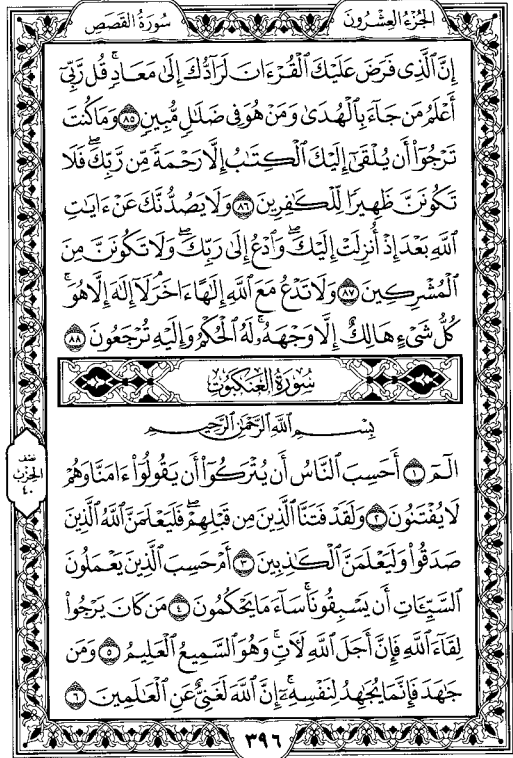 الجزء العشرون
سورة القصص
إِنَّ ٱلَّذِى فَرَضَ عَلَيْكَ ٱلْقُرْءَانَ لَرَآدُّكَ إِلَىٰ مَعَادٍۚ قُل رَّبِّىٓ
أَعْلَمُ مَن جَآءَ بِٱلْهُدَىٰ وَمَنْ هُوَ فِى ضَلَٰلٍ مُّبِينٍ ٨٥ وَمَا كُنتَ
تَرْجُوٓا۟ أَن يُلْقَىٰٓ إِلَيْكَ ٱلْكِتَٰبُ إِلَّا رَحْمَةً مِّن رَّبِّكَۖ فَلَا
تَكُونَنَّ ظَهِيرًا لِّلْكَٰفِرِينَ ٨٦ وَلَا يَصُدُّنَّكَ عَنْ ءَايَٰتِ
ٱللَّهِ بَعْدَ إِذْ أُنزِلَتْ إِلَيْكَۖ وَٱدْعُ إِلَىٰ رَبِّكَۖ وَلَا تَكُونَنَّ مِنَ
ٱلْمُشْرِكِينَ ٨٧ وَلَا تَدْعُ مَعَ ٱللَّهِ إِلَٰهًا ءَاخَرَۘ لَآ إِلَٰهَ إِلَّا هُوَۚ
كُلُّ شَىْءٍ هَالِكٌ إِلَّا وَجْهَهُۥۚ لَهُ ٱلْحُكْمُ وَإِلَيْهِ تُرْجَعُونَ ٨٨
سورة العنكبوت
بِسْمِ ٱللَّهِ ٱلرَّحْمَٰنِ ٱلرَّحِيمِ
الٓمٓ ١ أَحَسِبَ ٱلنَّاسُ أَن يُتْرَكُوٓا۟ أَن يَقُولُوٓا۟ ءَامَنَّا وَهُمْ
لَا يُفْتَنُونَ ٢ وَلَقَدْ فَتَنَّا ٱلَّذِينَ مِن قَبْلِهِمْۖ فَلَيَعْلَمَنَّ ٱللَّهُ ٱلَّذِينَ
صَدَقُوا۟ وَلَيَعْلَمَنَّ ٱلْكَٰذِبِينَ ٣ أَمْ حَسِبَ ٱلَّذِينَ يَعْمَلُونَ
ٱلسَّيِّـَٔاتِ أَن يَسْبِقُونَاۚ سَآءَ مَا يَحْكُمُونَ ٤ مَن كَانَ يَرْجُوا۟
لِقَآءَ ٱللَّهِ فَإِنَّ أَجَلَ ٱللَّهِ لَءَاتٍۚ وَهُوَ ٱلسَّمِيعُ ٱلْعَلِيمُ ٥ وَمَن
جَٰهَدَ فَإِنَّمَا يُجَٰهِدُ لِنَفْسِهِۦٓۚ إِنَّ ٱللَّهَ لَغَنِىٌّ عَنِ ٱلْعَٰلَمِينَ ٦
نصف
الحزب
٤٠
٣٩٦